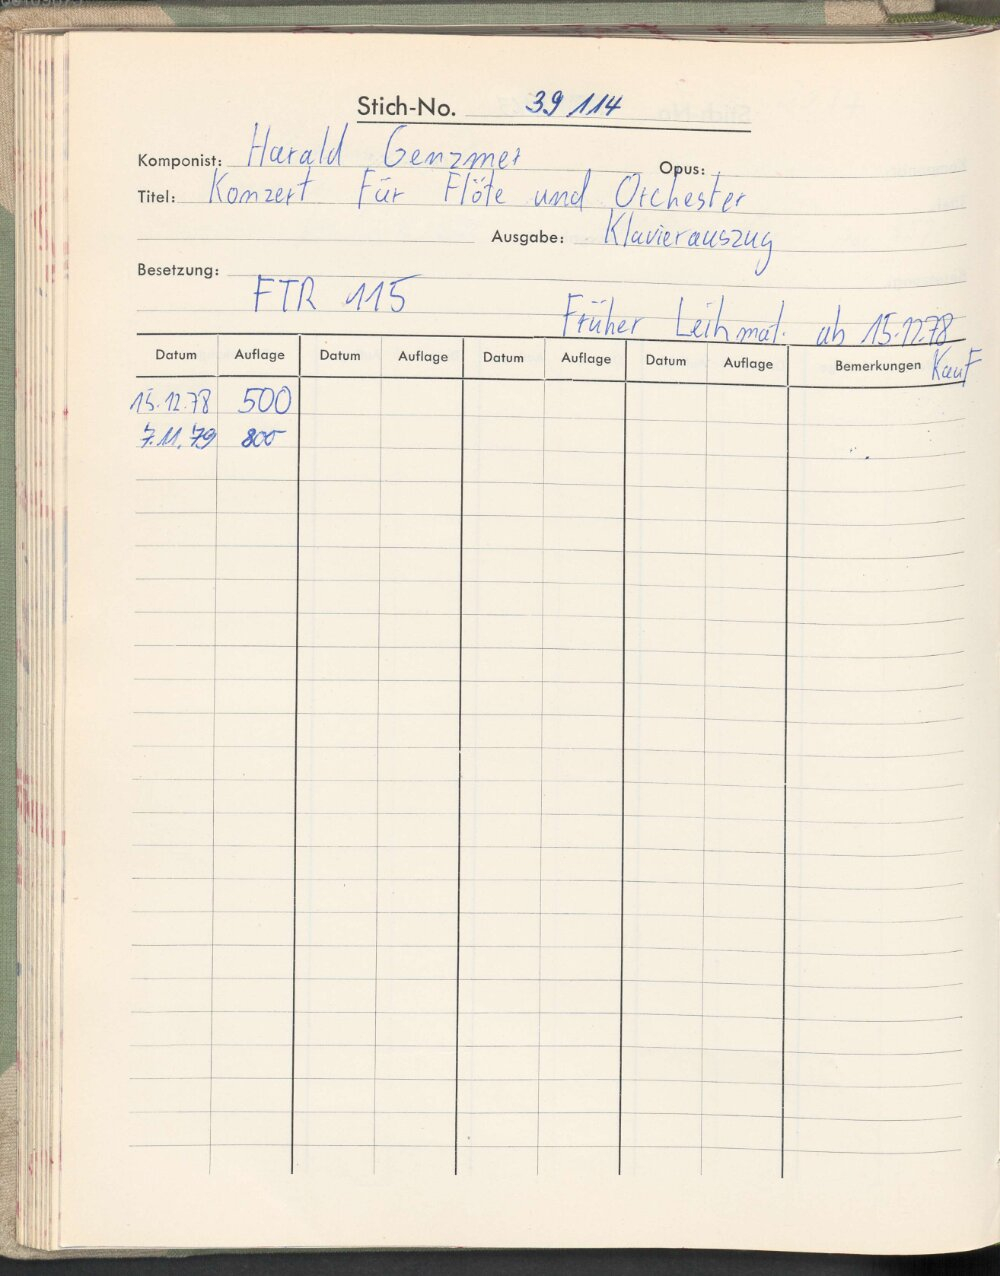 Stich-No. 39 114
Komponist: Harald Genzmer Opus:
Titel: Konzert Für Flöte und Orchester
Ausgabe: Klavierauszug
Besetzung:
FTR 115
Früher Leihmat. ab 15.12.78
Datum Auflage Datum Auflage Datum Auflage Datum Auflage Bemerkungen Kauf
15.12.78 500
7.11.79 800